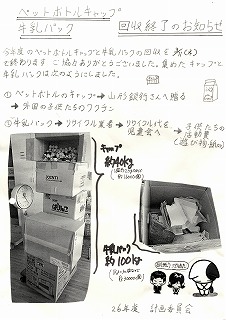 ペットボトルキャップ
牛乳パック 回収終了のお知らせ
今年度のペットボトルキャップと牛乳パックの回収を
終わります。ご協力ありがとうございました。集めたキャップと
牛乳パックは次のようにしました。
① ペットボトルのキャップ→山形銀行さんへ贈る
→外国の子供たちのワクチン
②牛乳パック→リサイクル業者→リサイクル代を
児童会へ
→子供たちの
活動費
キャップ
約40kg
牛乳パック
約100kg
26年度 計画委員会